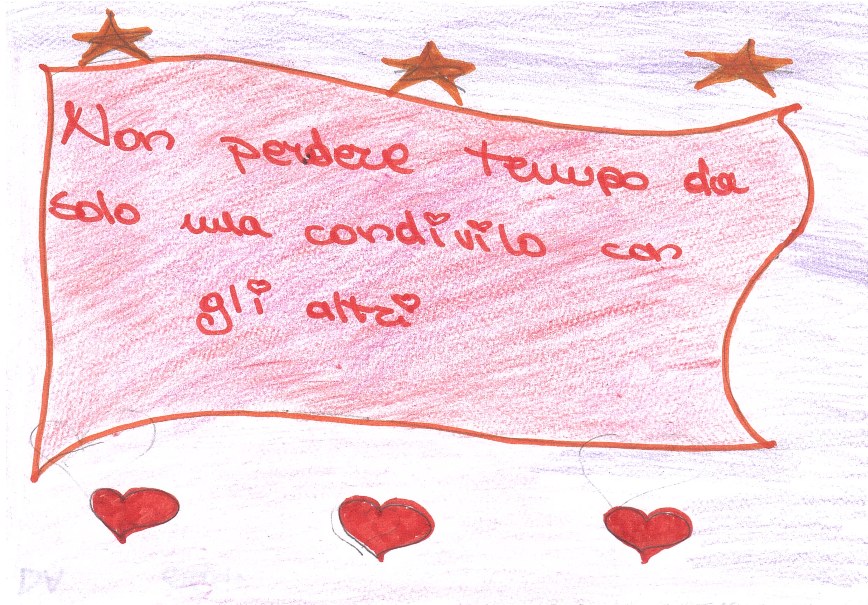 Non perdere tempo da
solo ma condivilo con
gli altri